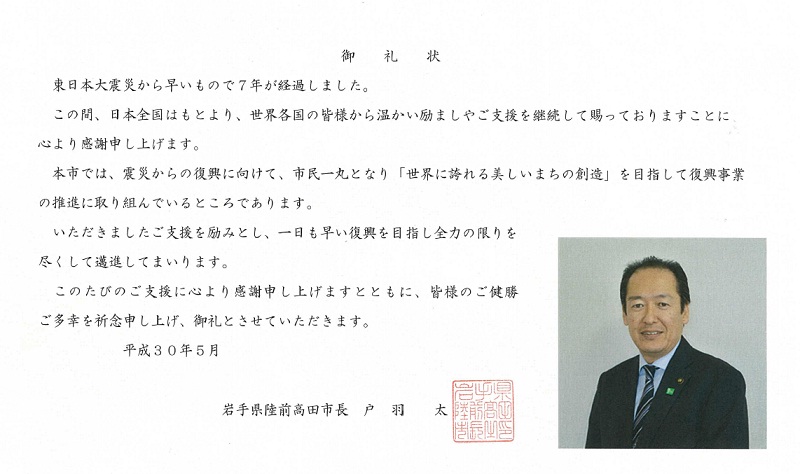 御　礼　状
東日本大震災から早いもので７年が経過しました。
この間、日本全国はもとより、世界各国の皆様から温かい励ましやご支援を継続して賜っておりますことに
心より感謝申し上げます。
本市では、震災からの復興に向けて、市民一丸となり「世界に誇れる美しいまちの創造」を目指して復興事業
の推進に取り組んでいるところであります。
いただきましたご支援を励みとし、一日も早い復興を目指し全力の限りを
尽くして邁進してまいります。
このたびのご支援に心より感謝申し上げますとともに、皆様のご健勝
ご多幸を祈念申し上げ、御礼とさせていただきます。
平成３０年５月
岩手県陸前高田市長　戸　羽　　太